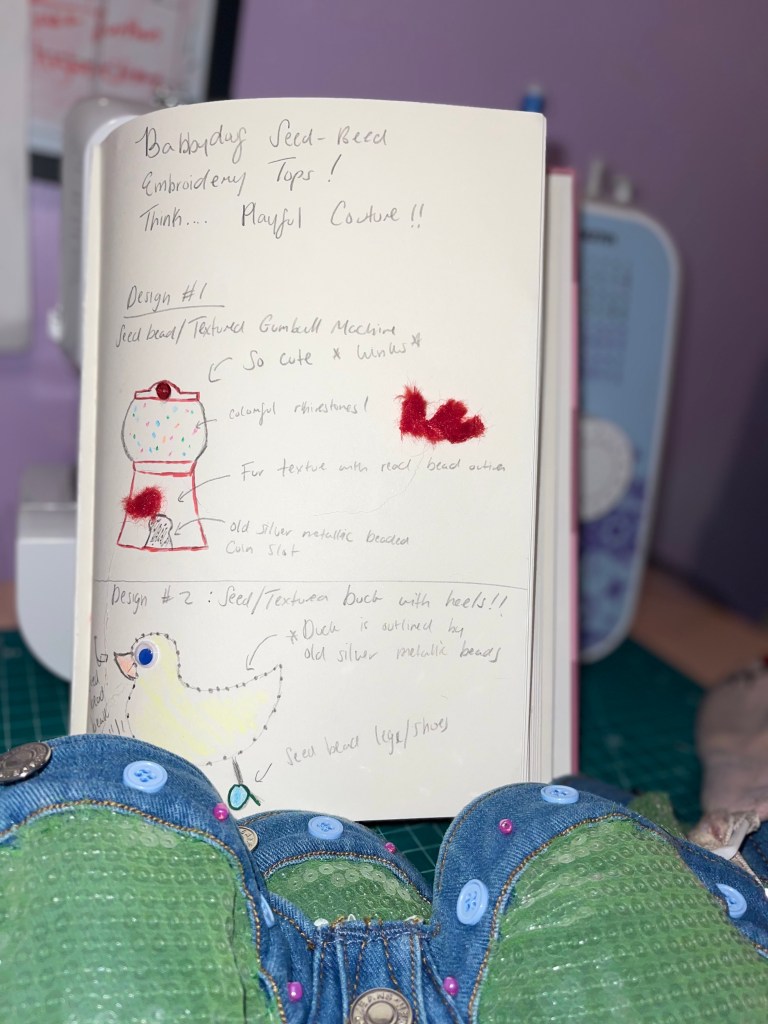 Babbydaf Seed-Beed
Embroidery Tops!
Think.... Playful Couture!!
Design #1
Seed bead/Textured Gumball Machine
So cute * Winks *
colorful rhinestones!
Fur texture with read bead outline
old silver metallic beaded
Coin Slot
Design #2 : Seed/Textured Duck with heels!!
* Duck is outlined by
old silver metallic beads
Seed bead legs/shoes